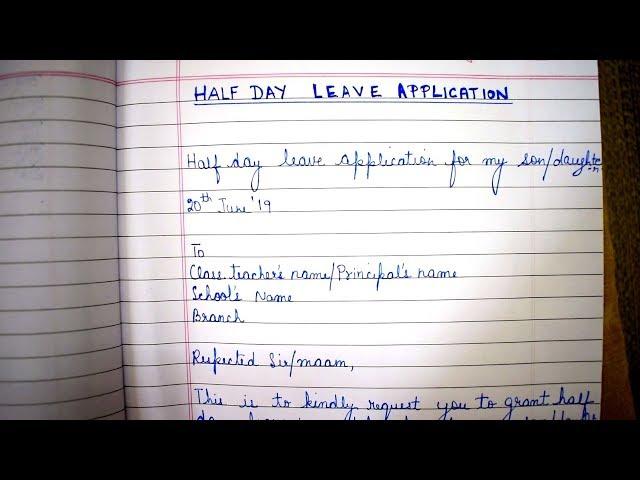 HALF DAY LEAVE APPLICATION
Half day leave application for my son/daughter
20th June'19
To
Class teacher's name/Principal's name
School's Name
Branch
Respected Sir/maam,
This is to kindly request you to grant half
day leave